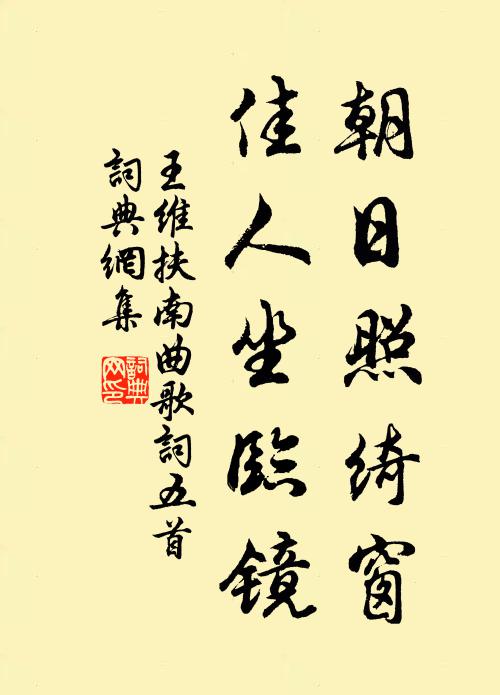 朝日照綺窗
佳人坐臨鏡
王維扶南曲歌詞五首
詞典網集
詞典
网印